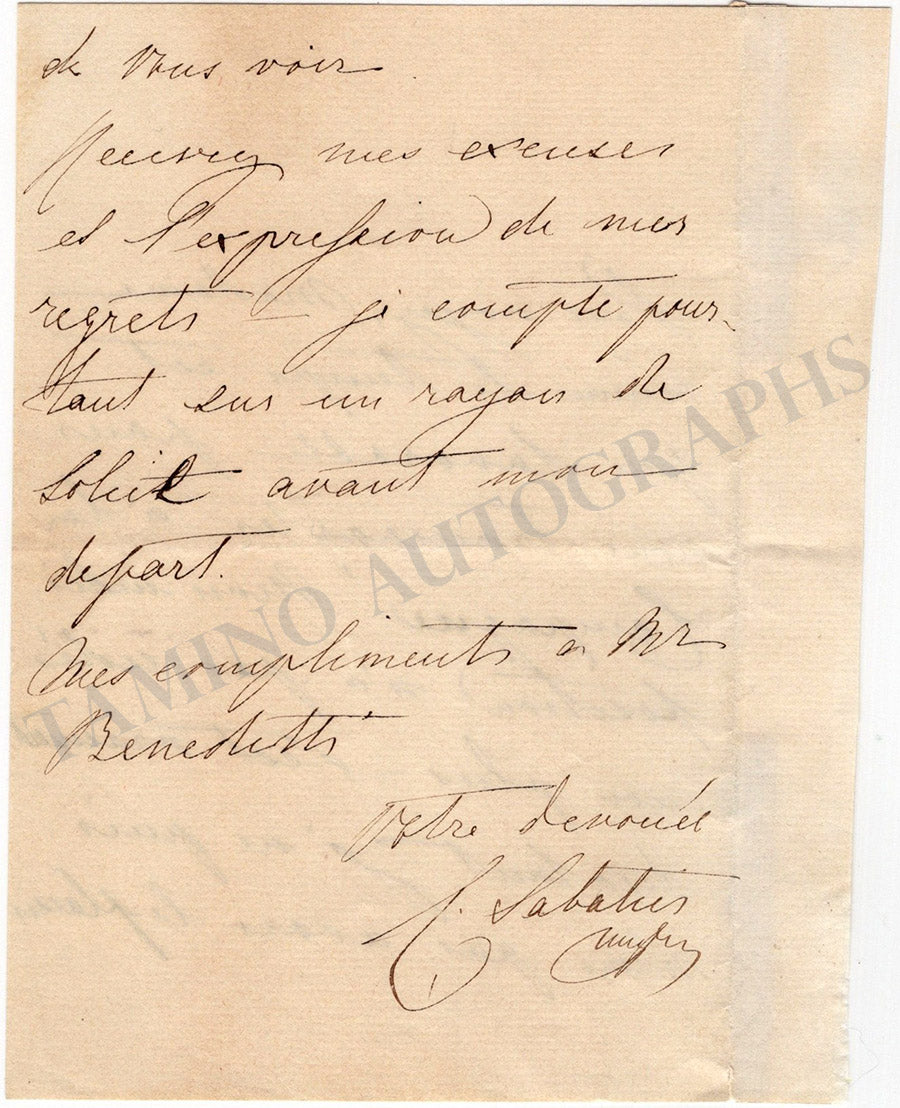 de vous voir
Recevez mes excuses
et l'expression de mes
regrets – je compte pour-
tant sur un rayon de
soleil avant mon
depart.
Mes compliments a Mr
Benedetti
Votre devouée
C. Sabatier
TAMINO AUTOGRAPHS